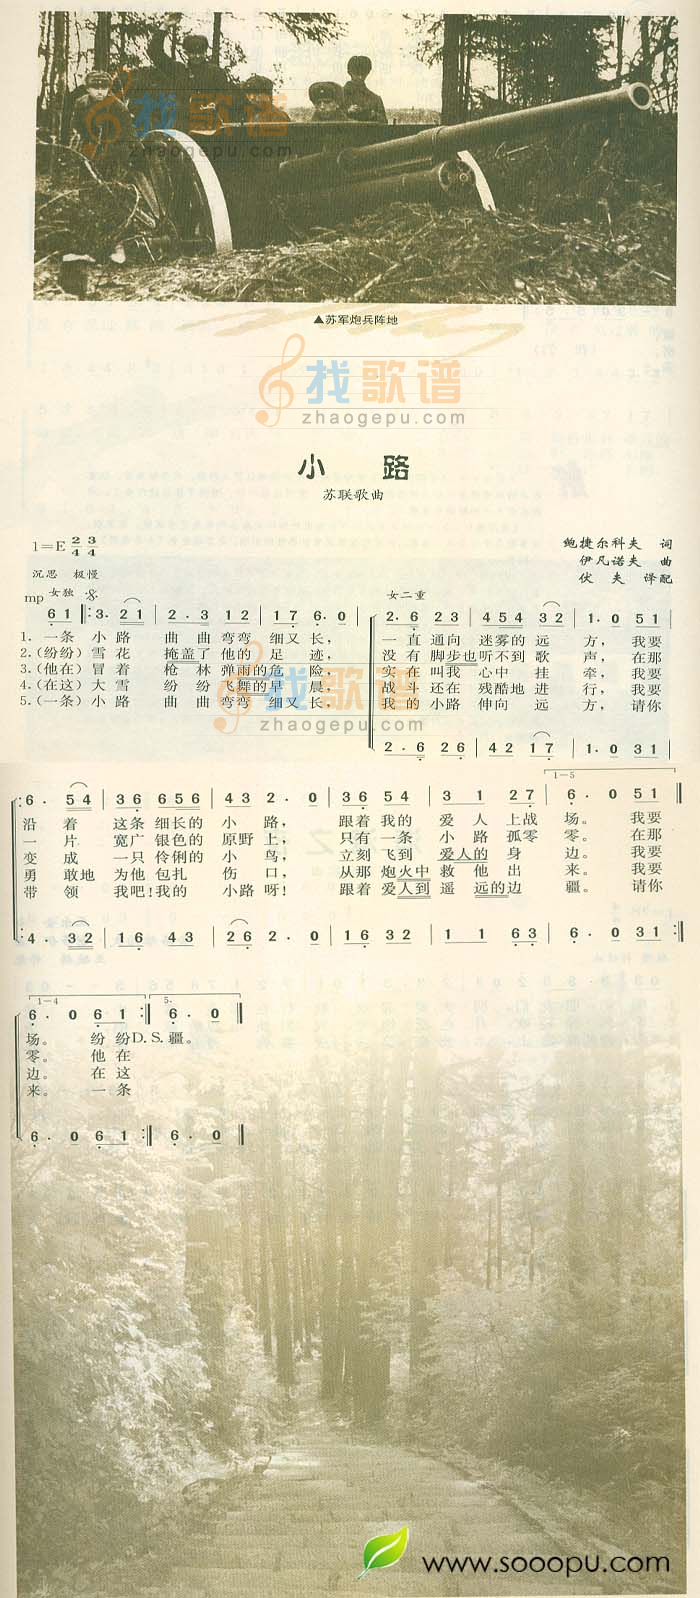 找歌谱
zhaogepu.com
▲苏军炮兵阵地
找歌谱
zhaogepu.com
小 路
苏联歌曲
1=E 2/4 3/4
鲍捷尔科夫 词
伊凡诺夫 曲
伏 夫 译配
沉思 极慢
mp 女独
女二重
6 1 ‖: 3. 2 1 | 2 . 3 1 2 | 1 7 6 . 0 | 2 . 6 2 3 | 4 5 4 3 2 | 1 . 0 5 1 |
1. 一条 小 路 曲 曲 弯弯 细又 长, 一 直 通向 迷雾的 远 方, 我要
2. (纷纷) 雪 花 掩盖了 他的 足 迹, 没 有 脚步也 听不到 歌 声, 在那
3. (他在) 冒 着 枪 林 弹雨的 危 险 实 在 叫我 心中 挂 牵, 我要
4. (在这) 大 雪 纷 纷 飞舞的 早 晨, 战 斗 还在 残酷地 进 行, 我要
5. (一条) 小 路 曲 曲 弯弯 细又 长, 我 的 小路 伸向 远 方, 请你
找歌谱
zhaogepu.com
2 . 6 2 6 | 4 2 1 7 | 1 . 0 3 1 |
1-5
6 . 5 4 | 3 6 6 5 6 | 4 3 2 . 0 | 3 6 5 4 | 3 1 2 7 | 6 . 0 5 1 ‖
沿 着 这条 细长的 小 路, 跟着 我的 爱 人 上战 场。 我要
一 片 宽广 银色的 原野 上, 只有 一条 小 路 孤零 零。 在那
变 成 一只 伶俐的 小 鸟, 立刻 飞到 爱人的 身 边。 我要
勇 敢地 为他 包扎 伤 口, 从那 炮火中 救 他 出 来。 我要
带 领 我吧!我的 小路 呀! 跟着 爱人到 遥 远的边 疆。 请你
4 . 3 2 | 1 6 4 3 | 2 6 2 . 0 | 1 6 3 2 | 1 1 6 3 | 6 . 0 3 1 ‖
1-4 5.
6 . 0 6 1 :‖ 6 . 0 ‖
场。 纷纷 D.S. 疆。
零。 他在
边。 在这
来。 一条
6 . 0 6 1 :‖ 6 . 0 ‖
www.sooopu.com